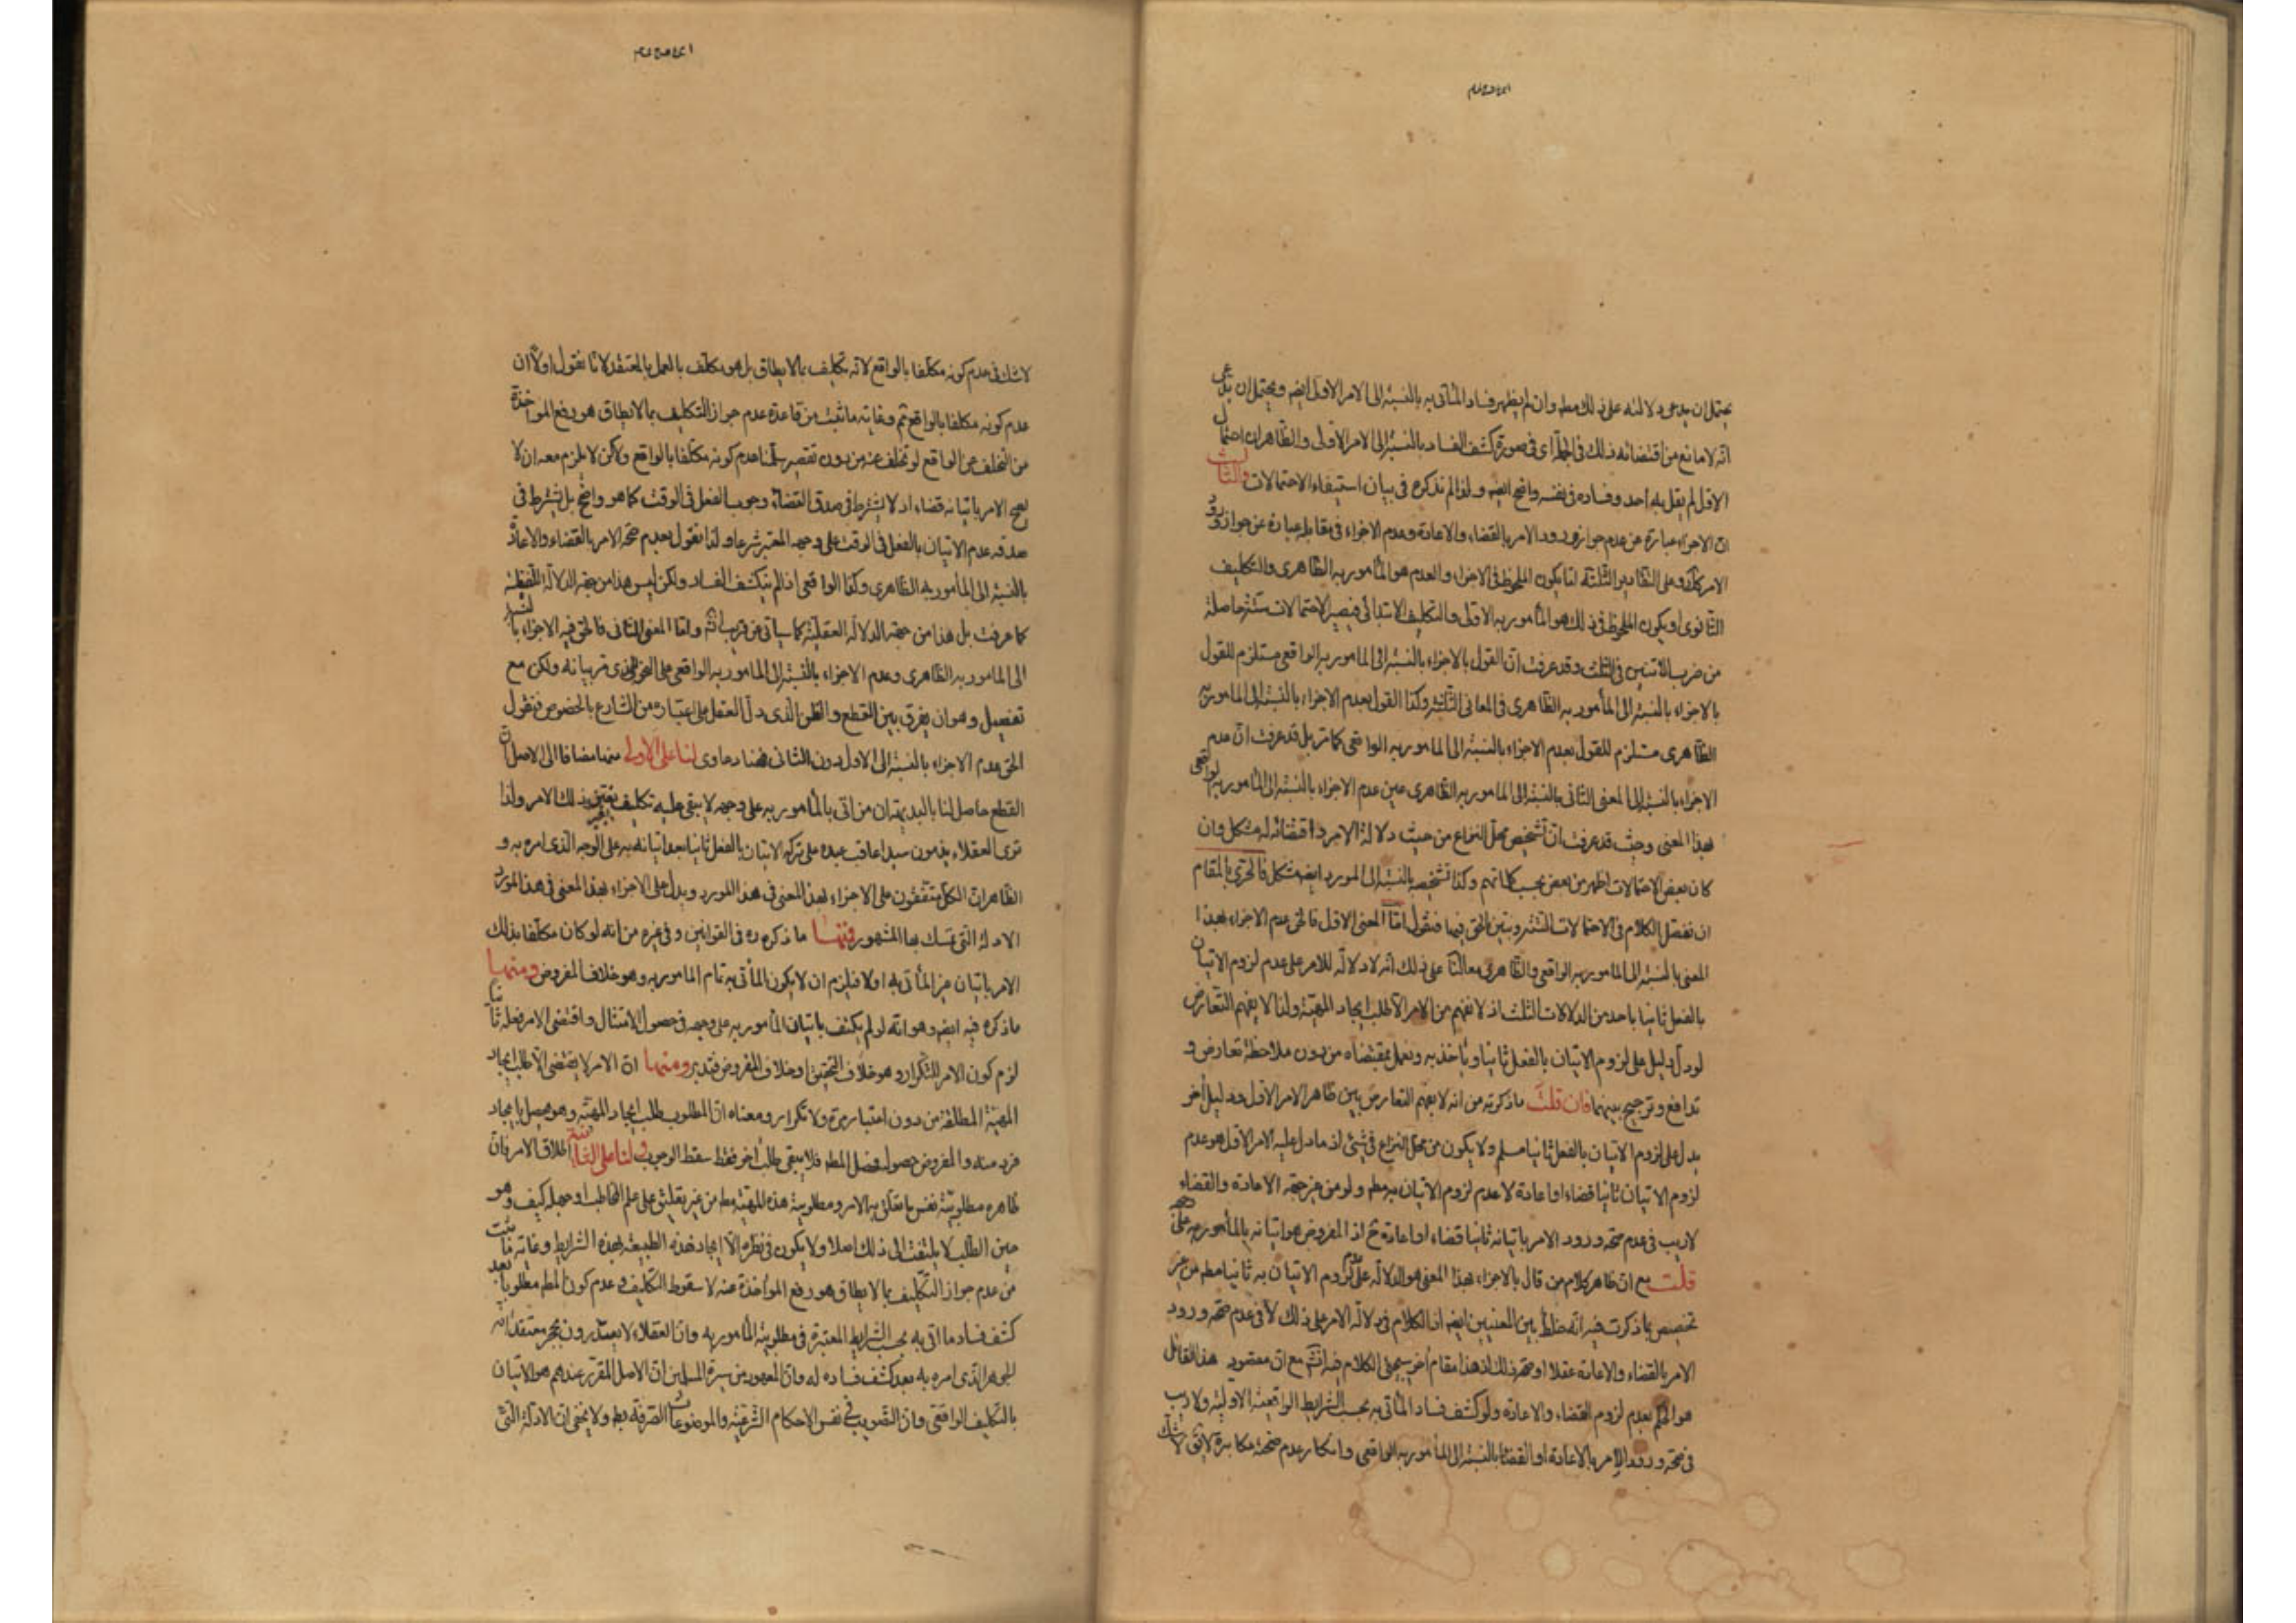 يحتمل ان يدعى دلالته على ذلك مط وان لم يظهر فساد المأتى به بالنسبة الى الامر الاول ايضه ويحتمل ان يدعى
انه لا مانع من اقتضائه ذلك في الجملة اى في صورة كشف الفساد بالنسبة الى الامر الاول والظاهر ان احتمال
الاول لم يقل به احد وفساده في نفسه واضح ايضه ولذا لم نذكره في بيان استيفاء الاحتمالات والثالث
ان الاجزاء عبارة عن عدم جواز ورود الامر بالقضاء والاعادة وعدم الاجزاء في مقابله عبارة عن جواز ورود
الامر كذلك وعلى التقادير الثلثة اما يكون الملحوظ في الاجزاء والعدم هو المأمور به الظاهرى والتكليف
الثانوى او يكون الملحوظ في ذلك هو المأمور به الاولى والتكليف الابتدائى فيصير الاحتمالات ستة حاصلة
من ضرب الاثنين في الثلث وقد عرفت ان القول بالاجزاء بالنسبة الى المامور به الواقعى مستلزم للقول
بالاجزاء بالنسبة الى المأمور به الظاهرى في المعانى الثلثة وكذا القول بعدم الاجزاء بالنسبة الى المامور به
الظاهرى مستلزم للقول بعدم الاجزاء بالنسبة الى المامور به الواقعى كما مر بل قد عرفت ان عدم
الاجزاء بالنسبة الى المعنى الثانى بالنسبة الى المامور به الظاهرى عين عدم الاجزاء بالنسبة الى المأمور به الواقعى
بهذا المعنى وحيث قد عرفت ان تشخيص محل النزاع من حيث دلالة الامر واقتضائه له مشكل وان
كان بعض الاحتمالات اظهر من بعض بحسب كلماتهم وكذا تشخيصه بالنسبة الى المورد ايضه مشكل فالحرى بالمقام
ان نفصل الكلام في الاحتمالات الستة ونبين الحق فيها فنقول اما المعنى الاول فالحق عدم الاجزاء بهذا
المعنى بالنسبة الى المامور به الواقعى والظاهرى معا لنا على ذلك انه لا دلالة للامر على عدم لزوم الاتيان
بالفعل ثانيا باحد من الدلالات الثلث اذ لا نفهم من الامر الا طلب ايجاد المهية ولذا لا يفهم التعارض
لو دل دليل على لزوم الاتيان بالفعل ثانيا وناخذ به ونعمل بمقتضاه من دون ملاحظة تعارض و
تدافع وترجيح بينهما فان قلت ما ذكرته من انه لا يفهم التعارض بين ظاهر الامر الاول ودليل آخر
يدل على لزوم الاتيان بالفعل ثانيا مسلم ولا يكون من محل النزاع في شئ اذ ما دل عليه الامر الاول هو عدم
لزوم الاتيان ثانيا قضاء او اعادة لا عدم لزوم الاتيان به مط ولو من غير جهة الاعادة والقضاء
لا ريب في عدم صحة ورود الامر باتيانه ثانيا قضاء او اعادة ح اذ المفروض هو اتيانه بالمأمور به على وجهه
قلت مع ان ظاهر كلام من قال بالاجزاء بهذا المعنى هو الدلالة على عدم لزوم الاتيان به ثانيا مط من غير
تخصيص بما ذكرت فيه انه خلط بين المعنيين ايضه اذ الكلام في دلالة الامر على ذلك لا في عدم صحة ورود
الامر بالقضاء والاعادة عقلا او صحة ذلك اذ هذا مقام آخر سيجئ الكلام فيه انشه مع ان مقصود هذا القائل
هو الحكم بعدم لزوم القضاء والاعادة ولو كشف فساد المأتى به بحسب الشرايط الواقعية الاولية ولا ريب
في صحة ورود الامر بالاعادة او القضا بالنسبة الى المأمور به الواقعى وانكار عدم صحته مكابرة لا يق لا شك
لا شك في عدم كونه مكلفا بالواقع لانه تكليف بما لا يطاق بل هو مكلف بالعمل بالمعتقد لانا نقول اولا ان
عدم كونه مكلفا بالواقع ثم وغاية ما ثبت من قاعدة عدم جواز التكليف بما لا يطاق هو رفع المواخذة
من التخلف عن الواقع لو تخلف عنه من دون تقصير سلمنا عدم كونه مكلفا بالواقع ولكن لا يلزم معه ان لا
يصح الامر باتيانه قضاء اذ لا يشترط في صدق القضاء وجوب الفعل في الوقت كما هو واضح بل يشترط في
صدقه عدم الاتيان بالفعل في الوقت على وجهه المعتبر شرعا ولذا نقول بعدم صحة الامر بالقضاء والاعادة
بالنسبة الى المأمور به الظاهرى وكذا الواقعى اذا لم ينكشف الفساد ولكن ليس هذا من جهة الدلالة اللفظية
كما عرفت بل هذا من جهة الدلالة العقلية كما سياتى عن قريب انشه واما المعنى الثانى فالحق فيه الاجزاء بالنسبة
الى المامور به الظاهرى وعدم الاجزاء بالنسبة الى المامور به الواقعى على النحو الذى مر بيانه ولكن مع
تفصيل وهو ان يفرق بين القطع والظن الذى دل العقل على اعتباره من الشارع بالخصوص فنقول
الحق عدم الاجزاء بالنسبة الى الاول دون الثانى فهنا دعاوى لنا على الاولى منها مضافا الى الاصل ان
القطع حاصل لنا بالبديهة ان من اتى بالمأمور به على وجهه لا يبقى عليه تكليف بنفس ذلك الامر ولذا
ترى العقلاء يذمون سيدا عاقب عبده على تركه الاتيان بالفعل ثانيا بعد اتيانه به على الوجه الذى امره به و
الظاهر ان الكل متفقون على الاجزاء بهذا المعنى في هذا المورد ويدل على الاجزاء بهذا المعنى في هذا المورد
الادلة التى تمسك بها المشهور فمنها ما ذكره ره في القوانين وفي غيره من انه لو كان مكلفا بذلك
الامر باتيان غير المأتى به اولا فيلزم ان لا يكون المأتى به تمام المامور به وهو خلاف المفروض ومنها
ما ذكره فيه ايضه وهو انه لو لم يكتف باتيان المأمور به على وجهه في حصول الامتثال واقتضى الامر فعله ثانيا
لزم كون الامر للتكرار وهو خلاف التحقيق او خلاف المفروض فتدبر ومنها ان الامر لا يقتضى الا طلب ايجاد
المهية المطلقة من دون اعتبار مرة ولا تكرار ومعناه ان المطلوب طلب ايجاد المهية وهو يحصل بايجاد
فرد منه والمفروض حصوله فحصل المط فلا يبقى طلب آخر فقد سقط الوجوب لنا على الثانية اطلاق الامر فان
ظاهره مطلوبية نفس ما تعلق به الامر ومطلوبية هذه المهية مط من غير تعليق على علم المخاطب او جهله كيف وهو
حين الطلب لا يلتفت الى ذلك اصلا ولا يكون في نظره الا ايجاد هذه الطبيعة بهذه الشرايط وغاية ما ثبت
من عدم جواز التكليف بما لا يطاق هو رفع المؤاخذة عنه لا سقوط التكليف وعدم كون المط مطلوبا بعد
كشف فساد ما اتى به بحسب الشرايط المعتبرة في مطلوبية المأمور به وان العقلاء لا يعتذرون بمجرد معتقد انه
الجوهر الذى امره به بعد كشف فساده له وان المعهود من سيرة المسلمين ان الاصل المقرر عندهم هو الاتيان
بالتكليف الواقعى وان التصويب في نفس الاحكام الشرعية والموضوعات الصرفة بط ولا يخفى ان الادلة التى